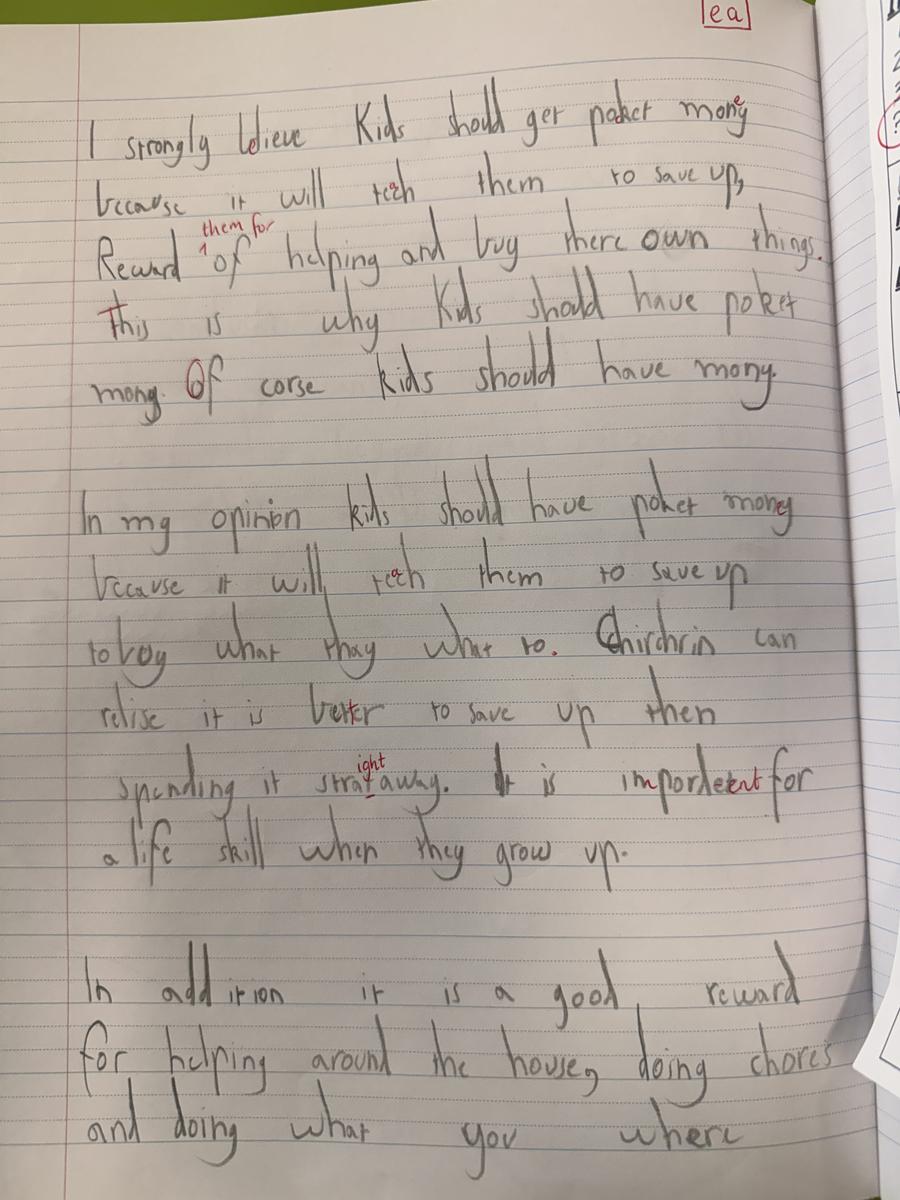 ea
I strongly beieve Kids should get poket money
because it will teach them to save up,
them for
Reward of helping and buy there own things.
This is why Kids should have poket
mony. Of corse kids should have mony.
In my opinion kids should have poket money
because it will teach them to save up
to boy what thay what to. Chirdrin can
relise it is better to save up then
ight
spending it strat away. It is important for
a life skill when they grow up.
In addition it is a good reward
for helping around the house, doing chores
and doing what you where